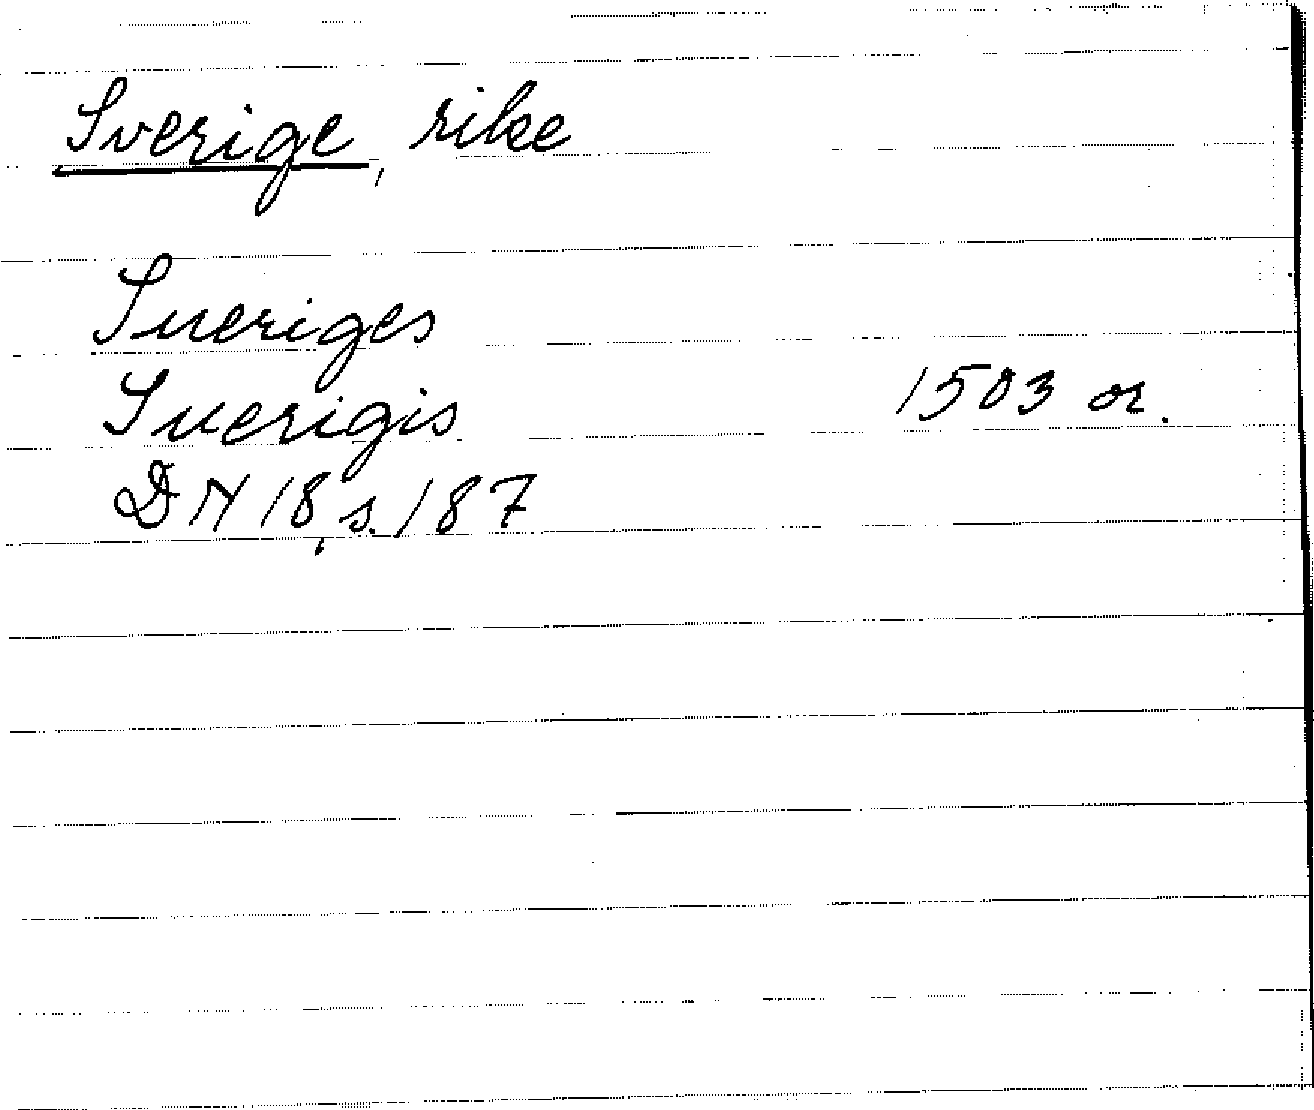 Sverige, rike
Sueriges
Suerigis 1503 or.
DN 18, s. 187